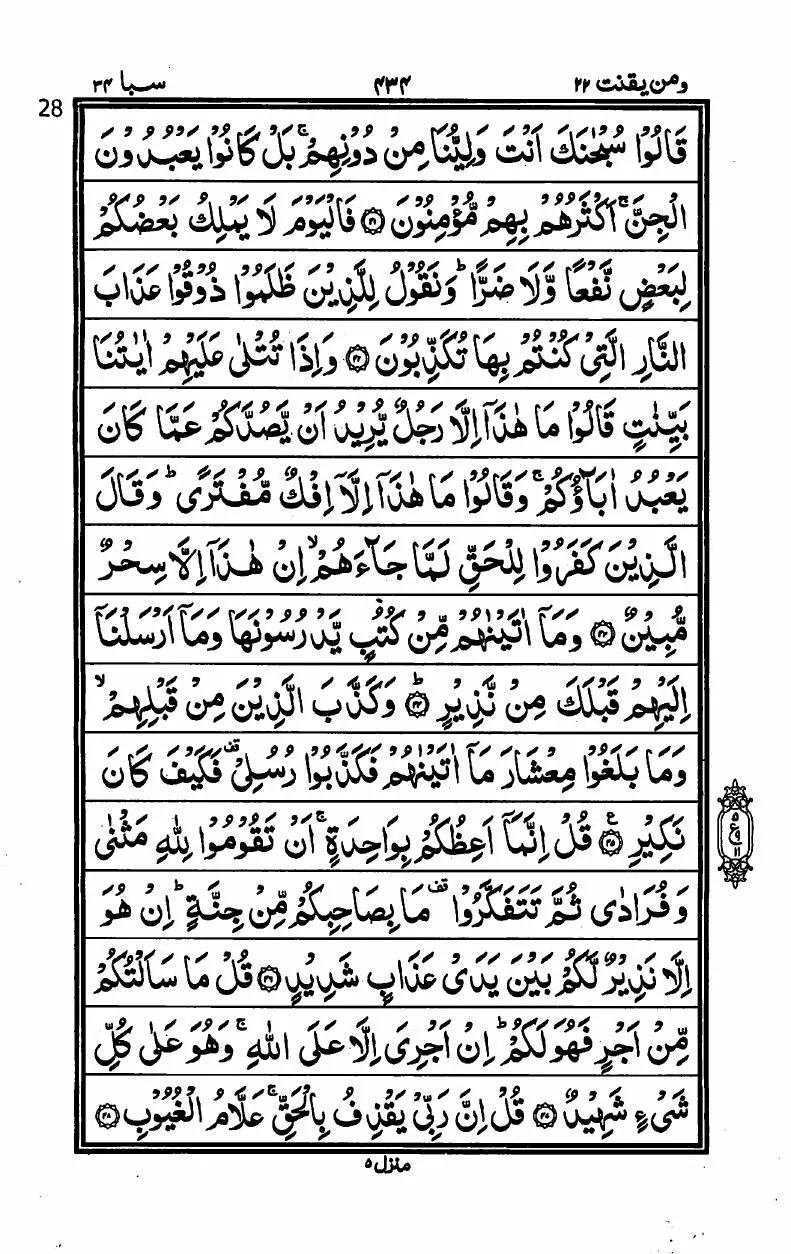 ومن یقنت ۲۲ ۴۳۴ سبا ۳۴
28
قَالُوْا سُبْحٰنَكَ اَنْتَ وَلِيُّنَا مِنْ دُوْنِهِمْ ۚ بَلْ كَانُوْا يَعْبُدُوْنَ
الْجِنَّ ۚ اَكْثَرُهُمْ بِهِمْ مُّؤْمِنُوْنَ ﴿۴۱﴾ فَالْيَوْمَ لَا يَمْلِكُ بَعْضُكُمْ
لِبَعْضٍ نَّفْعًا وَّلَا ضَرًّا ؕ وَنَقُوْلُ لِلَّذِيْنَ ظَلَمُوْا ذُوْقُوْا عَذَابَ
النَّارِ الَّتِيْ كُنْتُمْ بِهَا تُكَذِّبُوْنَ ﴿۴۲﴾ وَاِذَا تُتْلٰى عَلَيْهِمْ اٰيٰتُنَا
بَيِّنٰتٍ قَالُوْا مَا هٰذَآ اِلَّا رَجُلٌ يُّرِيْدُ اَنْ يَّصُدَّكُمْ عَمَّا كَانَ
يَعْبُدُ اٰبَآؤُكُمْ ۚ وَقَالُوْا مَا هٰذَآ اِلَّآ اِفْكٌ مُّفْتَرًى ؕ وَقَالَ
الَّذِيْنَ كَفَرُوْا لِلْحَقِّ لَمَّا جَآءَهُمْ ۙ اِنْ هٰذَآ اِلَّا سِحْرٌ
مُّبِيْنٌ ﴿۴۳﴾ وَمَآ اٰتَيْنٰهُمْ مِّنْ كُتُبٍ يَّدْرُسُوْنَهَا وَمَآ اَرْسَلْنَآ
اِلَيْهِمْ قَبْلَكَ مِنْ نَّذِيْرٍ ؕ ﴿۴۴﴾ وَكَذَّبَ الَّذِيْنَ مِنْ قَبْلِهِمْ ۙ
وَمَا بَلَغُوْا مِعْشَارَ مَآ اٰتَيْنٰهُمْ فَكَذَّبُوْا رُسُلِيْ ۟ فَكَيْفَ كَانَ
نَكِيْرِ ﴿۴۵﴾ قُلْ اِنَّمَآ اَعِظُكُمْ بِوَاحِدَةٍ ۚ اَنْ تَقُوْمُوْا لِلّٰهِ مَثْنٰى
وَفُرَادٰى ثُمَّ تَتَفَكَّرُوْا ۟ مَا بِصَاحِبِكُمْ مِّنْ جِنَّةٍ ؕ اِنْ هُوَ
اِلَّا نَذِيْرٌ لَّكُمْ بَيْنَ يَدَيْ عَذَابٍ شَدِيْدٍ ﴿۴۶﴾ قُلْ مَا سَاَلْتُكُمْ
مِّنْ اَجْرٍ فَهُوَ لَكُمْ ؕ اِنْ اَجْرِيَ اِلَّا عَلَى اللّٰهِ ۚ وَهُوَ عَلٰى كُلِّ
شَيْءٍ شَهِيْدٌ ﴿۴۷﴾ قُلْ اِنَّ رَبِّيْ يَقْذِفُ بِالْحَقِّ ۚ عَلَّامُ الْغُيُوْبِ ﴿۴۸﴾
۵
ع
۱۱
منزل ۵